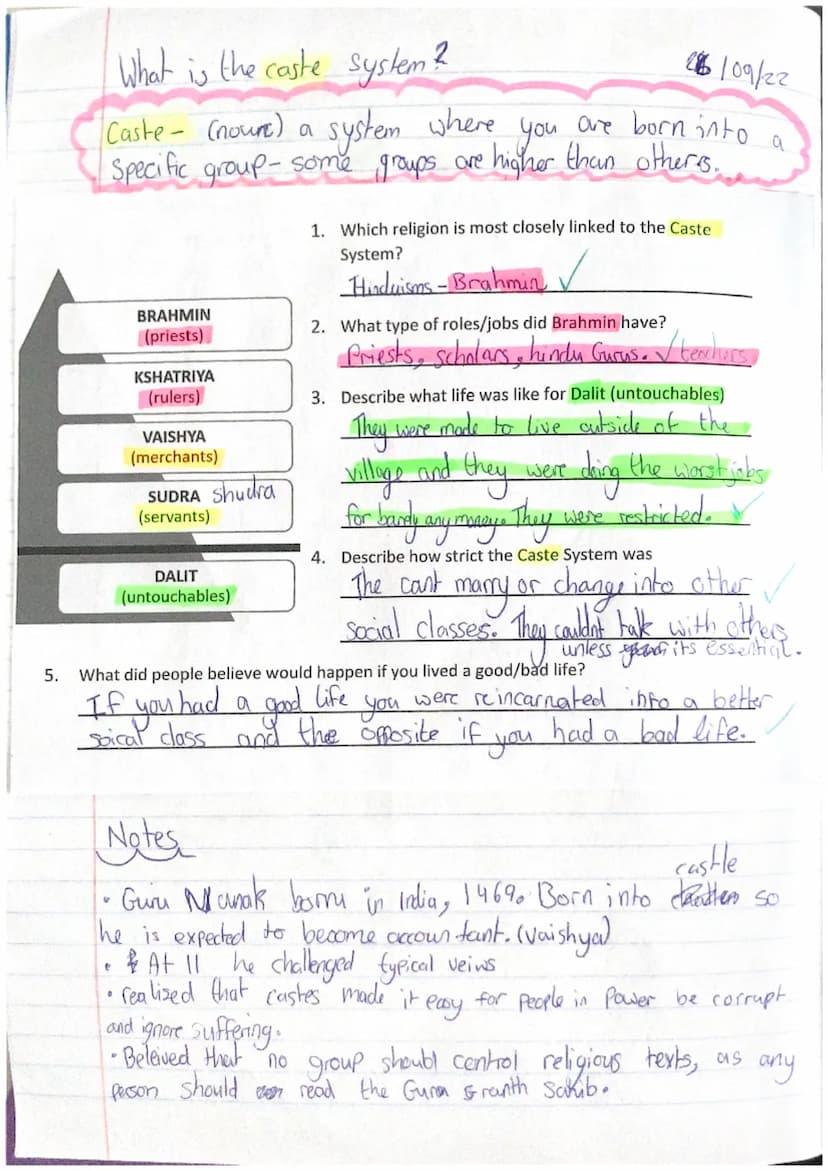 What is the caste system?
/09/22
Caste - (noun) a system where you are born into a
specific group - some groups are higher than others.
1. Which religion is most closely linked to the Caste
System?
Hinduisms - Brahmin
2. What type of roles/jobs did Brahmin have?
Priests, scholars, hindu Gurus. teachers
3. Describe what life was like for Dalit (untouchables)
They were made to live outside of the
village and they were doing the worst jobs
for barely any money. They were restricted.
4. Describe how strict the Caste System was
The cant marry or change into other
social classes. They couldnt talk with others
unless its essential.
BRAHMIN
(priests)
KSHATRIYA
(rulers)
VAISHYA
(merchants)
SUDRA shudra
(servants)
DALIT
(untouchables)
5. What did people believe would happen if you lived a good/bad life?
If you had a good life you were reincarnated into a better
soical class and the opposite if you had a bad life.
Notes
• Guru Nanak born in India, 1469. Born into castle so
he is expected to become accountant. (Vaishya)
• At 11 he challenged typical veiws
• realized that castes made it easy for people in Power be corrupt
and ignore suffering.
• Beleived that no group should control religious texts, as any
person should read the Guru Granth Sahib.